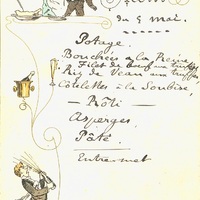 du 5 mai.
Potage.
Bouchées à la Reine
Filet de bœuf aux truffes
Riz de Veau aux truffes
Côtelettes à la Soubise,
— Rôti —
Asperges,
Pâté.
Entremet